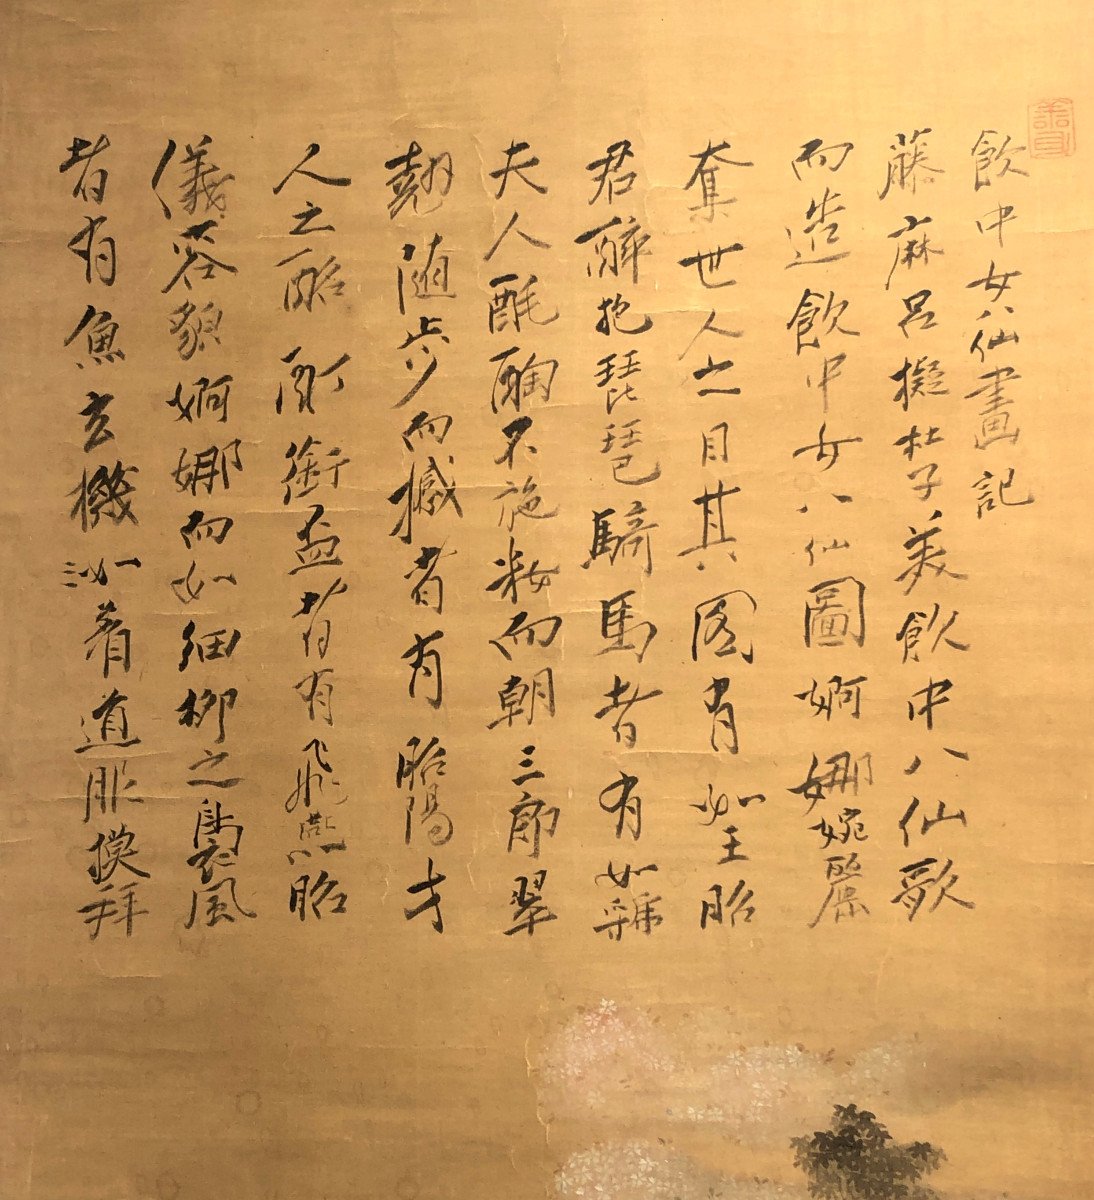 飲中女八仙畫記
藤麻呂擬杜子美飲中八仙歌
而造飲中女八仙圖婀娜婉麗
奪世人之目其圖有如王昭
君醉抱琵琶騎馬者有如虢
夫人酕醄不施粧而朝三郎翠
翹随歩而撼者有昭陽才
人之酩酊銜盃者有飛燕昭
儀容貌婀娜而如細柳之裊風
者有魚玄機如着道服摸拜